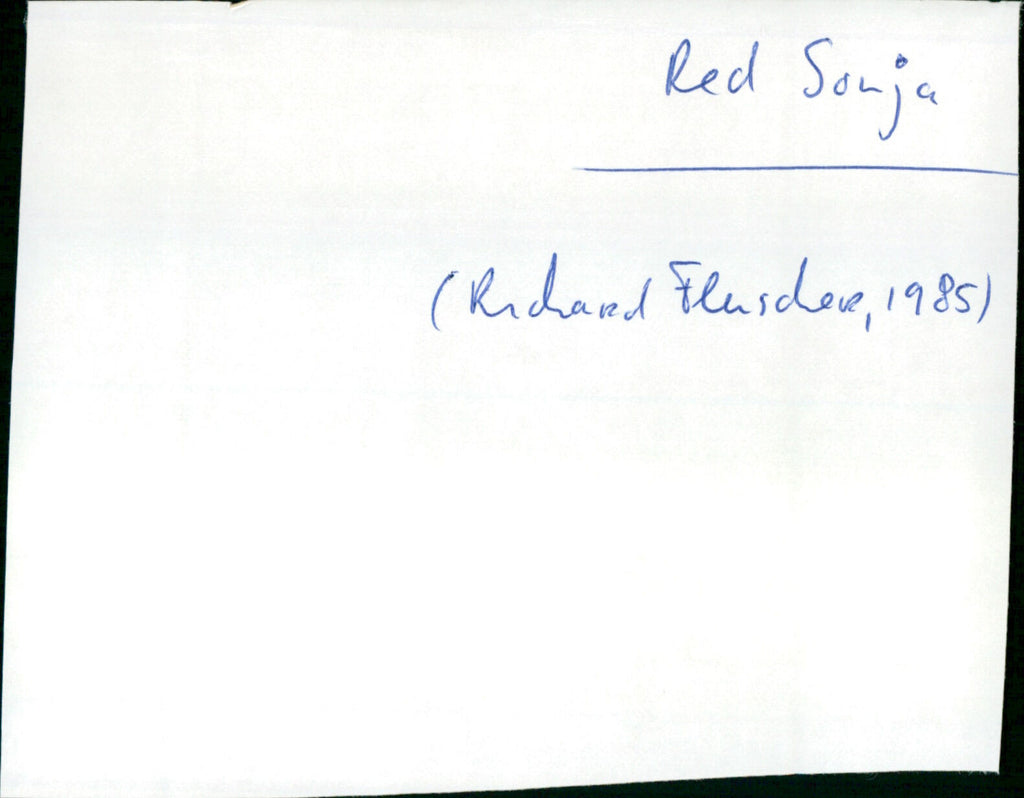 Red Sonja
(Richard Fleischer, 1985)